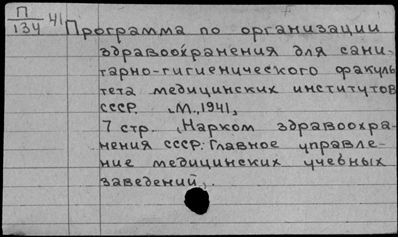 П
134
41
Программа по организации
здравоохранения для сани-
тарно-гигиенического факуль
тета медицинских институтов
СССР. М., 1941,
7 стр. Нарком здравоохра-
нения СССР. Главное управле-
ние медицинских учебных
заведений.